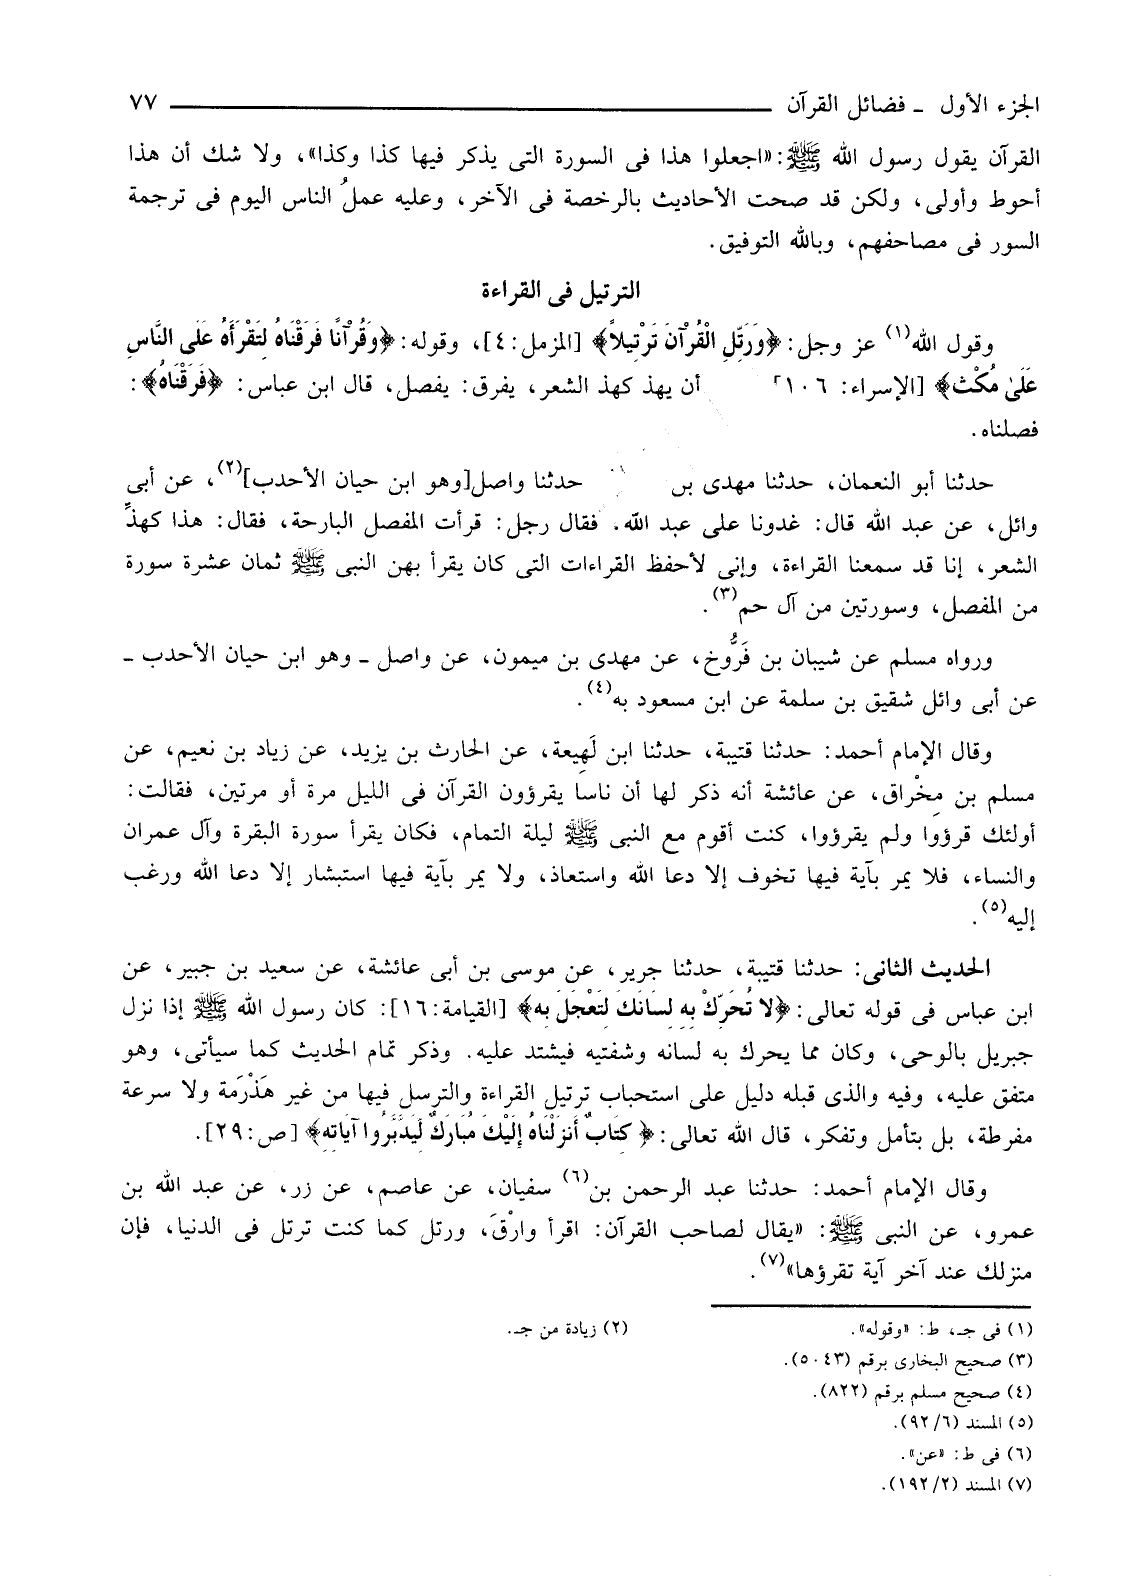 الجزء الأول ـ فضائل القرآن ٧٧
القرآن يقول رسول الله ﷺ: «اجعلوا هذا فى السورة التى يذكر فيها كذا وكذا»، ولا شك أن هذا
أحوط وأولى، ولكن قد صحت الأحاديث بالرخصة فى الآخر، وعليه عملُ الناس اليوم فى ترجمة
السور فى مصاحفهم، وبالله التوفيق.
الترتيل فى القراءة
وقول الله(١) عز وجل: ﴿وَرَتِّلِ الْقُرْآنَ تَرْتِيلاً﴾ [المزمل:٤]، وقوله: ﴿وَقُرْآنًا فَرَقْنَاهُ لِتَقْرَأَهُ عَلَى النَّاسِ
عَلَىٰ مُكْثٍ﴾ [الإسراء: ١٠٦] أن يهذ كهذ الشعر، يفرق: يفصل، قال ابن عباس: ﴿فَرَقْنَاهُ﴾:
فصلناه.
حدثنا أبو النعمان، حدثنا مهدى بن حدثنا واصل[وهو ابن حيان الأحدب](٢)، عن أبى
وائل، عن عبد الله قال: غدونا على عبد الله. فقال رجل: قرأت المفصل البارحة، فقال: هذا كهذِّ
الشعر، إنا قد سمعنا القراءة، وإنى لأحفظ القراءات التى كان يقرأ بهن النبى ﷺ ثمان عشرة سورة
من المفصل، وسورتين من آل حم(٣).
ورواه مسلم عن شيبان بن فَرُّوخ، عن مهدى بن ميمون، عن واصل ـ وهو ابن حيان الأحدب ـ
عن أبى وائل شقيق بن سلمة عن ابن مسعود به(٤).
وقال الإمام أحمد: حدثنا قتيبة، حدثنا ابن لَهِيعة، عن الحارث بن يزيد، عن زياد بن نعيم، عن
مسلم بن مِخْراق، عن عائشة أنه ذكر لها أن ناسا يقرؤون القرآن فى الليل مرة أو مرتين، فقالت:
أولئك قرؤوا ولم يقرؤوا، كنت أقوم مع النبى ﷺ ليلة التمام، فكان يقرأ سورة البقرة وآل عمران
والنساء، فلا يمر بآية فيها تخوف إلا دعا الله واستعاذ، ولا يمر بآية فيها استبشار إلا دعا الله ورغب
إليه(٥).
الحديث الثانى: حدثنا قتيبة، حدثنا جرير، عن موسى بن أبى عائشة، عن سعيد بن جبير، عن
ابن عباس فى قوله تعالى: ﴿لا تُحَرِّكْ بِهِ لِسَانَكَ لِتَعْجَلَ بِهِ﴾ [القيامة:١٦]: كان رسول الله ﷺ إذا نزل
جبريل بالوحى، وكان مما يحرك به لسانه وشفتيه فيشتد عليه. وذكر تمام الحديث كما سيأتى، وهو
متفق عليه، وفيه والذى قبله دليل على استحباب ترتيل القراءة والترسل فيها من غير هَذْرَمة ولا سرعة
مفرطة، بل بتأمل وتفكر، قال الله تعالى: ﴿كِتَابٌ أَنزَلْنَاهُ إِلَيْكَ مُبَارَكٌ لِيَدَّبَّرُوا آيَاتِهِ﴾ [ص:٢٩].
وقال الإمام أحمد: حدثنا عبد الرحمن بن(٦) سفيان، عن عاصم، عن زر، عن عبد الله بن
عمرو، عن النبى ﷺ: «يقال لصاحب القرآن: اقرأ وارْقَ، ورتل كما كنت ترتل فى الدنيا، فإن
منزلك عند آخر آية تقرؤها»(٧).
(١) فى جـ، ط: «وقوله». (٢) زيادة من جـ.
(٣) صحيح البخارى برقم (٥٠٤٣).
(٤) صحيح مسلم برقم (٨٢٢).
(٥) المسند (٦/ ٩٢).
(٦) فى ط: «عن».
(٧) المسند (٢/ ١٩٢).